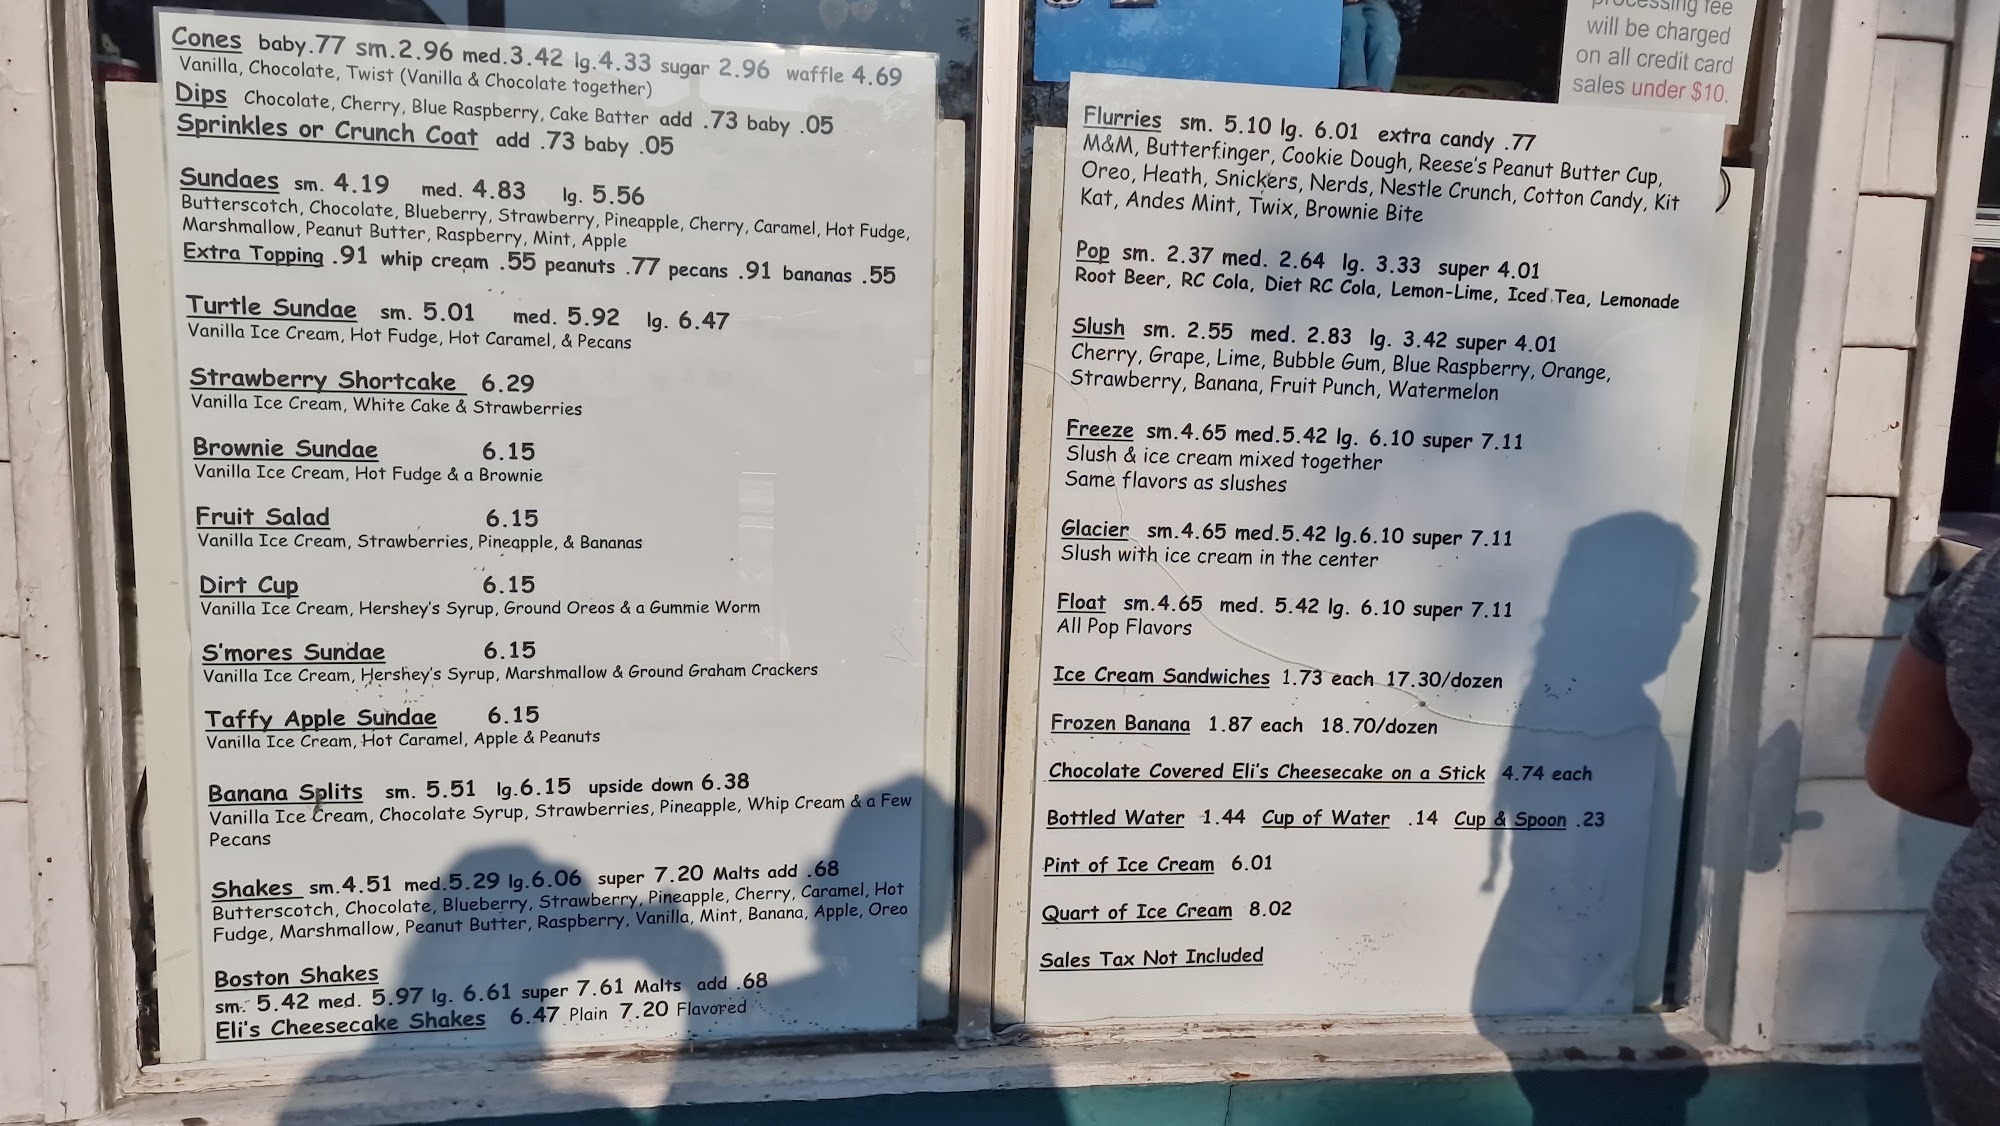 Cones baby.77 sm.2.96 med.3.42 lg.4.33 sugar 2.96 waffle 4.69
Vanilla, Chocolate, Twist (Vanilla & Chocolate together)
Dips Chocolate, Cherry, Blue Raspberry, Cake Batter add .73 baby .05
Sprinkles or Crunch Coat add .73 baby .05
Sundaes sm. 4.19 med. 4.83 lg. 5.56
Butterscotch, Chocolate, Blueberry, Strawberry, Pineapple, Cherry, Caramel, Hot Fudge,
Marshmallow, Peanut Butter, Raspberry, Mint, Apple
Extra Topping .91 whip cream .55 peanuts .77 pecans .91 bananas .55
Turtle Sundae sm. 5.01 med. 5.92 lg. 6.47
Vanilla Ice Cream, Hot Fudge, Hot Caramel, & Pecans
Strawberry Shortcake 6.29
Vanilla Ice Cream, White Cake & Strawberries
Brownie Sundae 6.15
Vanilla Ice Cream, Hot Fudge & a Brownie
Fruit Salad 6.15
Vanilla Ice Cream, Strawberries, Pineapple, & Bananas
Dirt Cup 6.15
Vanilla Ice Cream, Hershey's Syrup, Ground Oreos & a Gummie Worm
S'mores Sundae 6.15
Vanilla Ice Cream, Hershey's Syrup, Marshmallow & Ground Graham Crackers
Taffy Apple Sundae 6.15
Vanilla Ice Cream, Hot Caramel, Apple & Peanuts
Banana Splits sm. 5.51 lg.6.15 upside down 6.38
Vanilla Ice Cream, Chocolate Syrup, Strawberries, Pineapple, Whip Cream & a Few
Pecans
Shakes sm.4.51 med.5.29 lg.6.06 super 7.20 Malts add .68
Butterscotch, Chocolate, Blueberry, Strawberry, Pineapple, Cherry, Caramel, Hot
Fudge, Marshmallow, Peanut Butter, Raspberry, Vanilla, Mint, Banana, Apple, Oreo
Boston Shakes
sm. 5.42 med. 5.97 lg. 6.61 super 7.61 Malts add .68
Eli's Cheesecake Shakes 6.47 Plain 7.20 Flavored
processing fee
will be charged
on all credit card
sales under $10.
Flurries sm. 5.10 lg. 6.01 extra candy .77
M&M, Butterfinger, Cookie Dough, Reese's Peanut Butter Cup,
Oreo, Heath, Snickers, Nerds, Nestle Crunch, Cotton Candy, Kit
Kat, Andes Mint, Twix, Brownie Bite
Pop sm. 2.37 med. 2.64 lg. 3.33 super 4.01
Root Beer, RC Cola, Diet RC Cola, Lemon-Lime, Iced Tea, Lemonade
Slush sm. 2.55 med. 2.83 lg. 3.42 super 4.01
Cherry, Grape, Lime, Bubble Gum, Blue Raspberry, Orange,
Strawberry, Banana, Fruit Punch, Watermelon
Freeze sm.4.65 med.5.42 lg. 6.10 super 7.11
Slush & ice cream mixed together
Same flavors as slushes
Glacier sm.4.65 med.5.42 lg.6.10 super 7.11
Slush with ice cream in the center
Float sm.4.65 med. 5.42 lg. 6.10 super 7.11
All Pop Flavors
Ice Cream Sandwiches 1.73 each 17.30/dozen
Frozen Banana 1.87 each 18.70/dozen
Chocolate Covered Eli's Cheesecake on a Stick 4.74 each
Bottled Water 1.44 Cup of Water .14 Cup & Spoon .23
Pint of Ice Cream 6.01
Quart of Ice Cream 8.02
Sales Tax Not Included